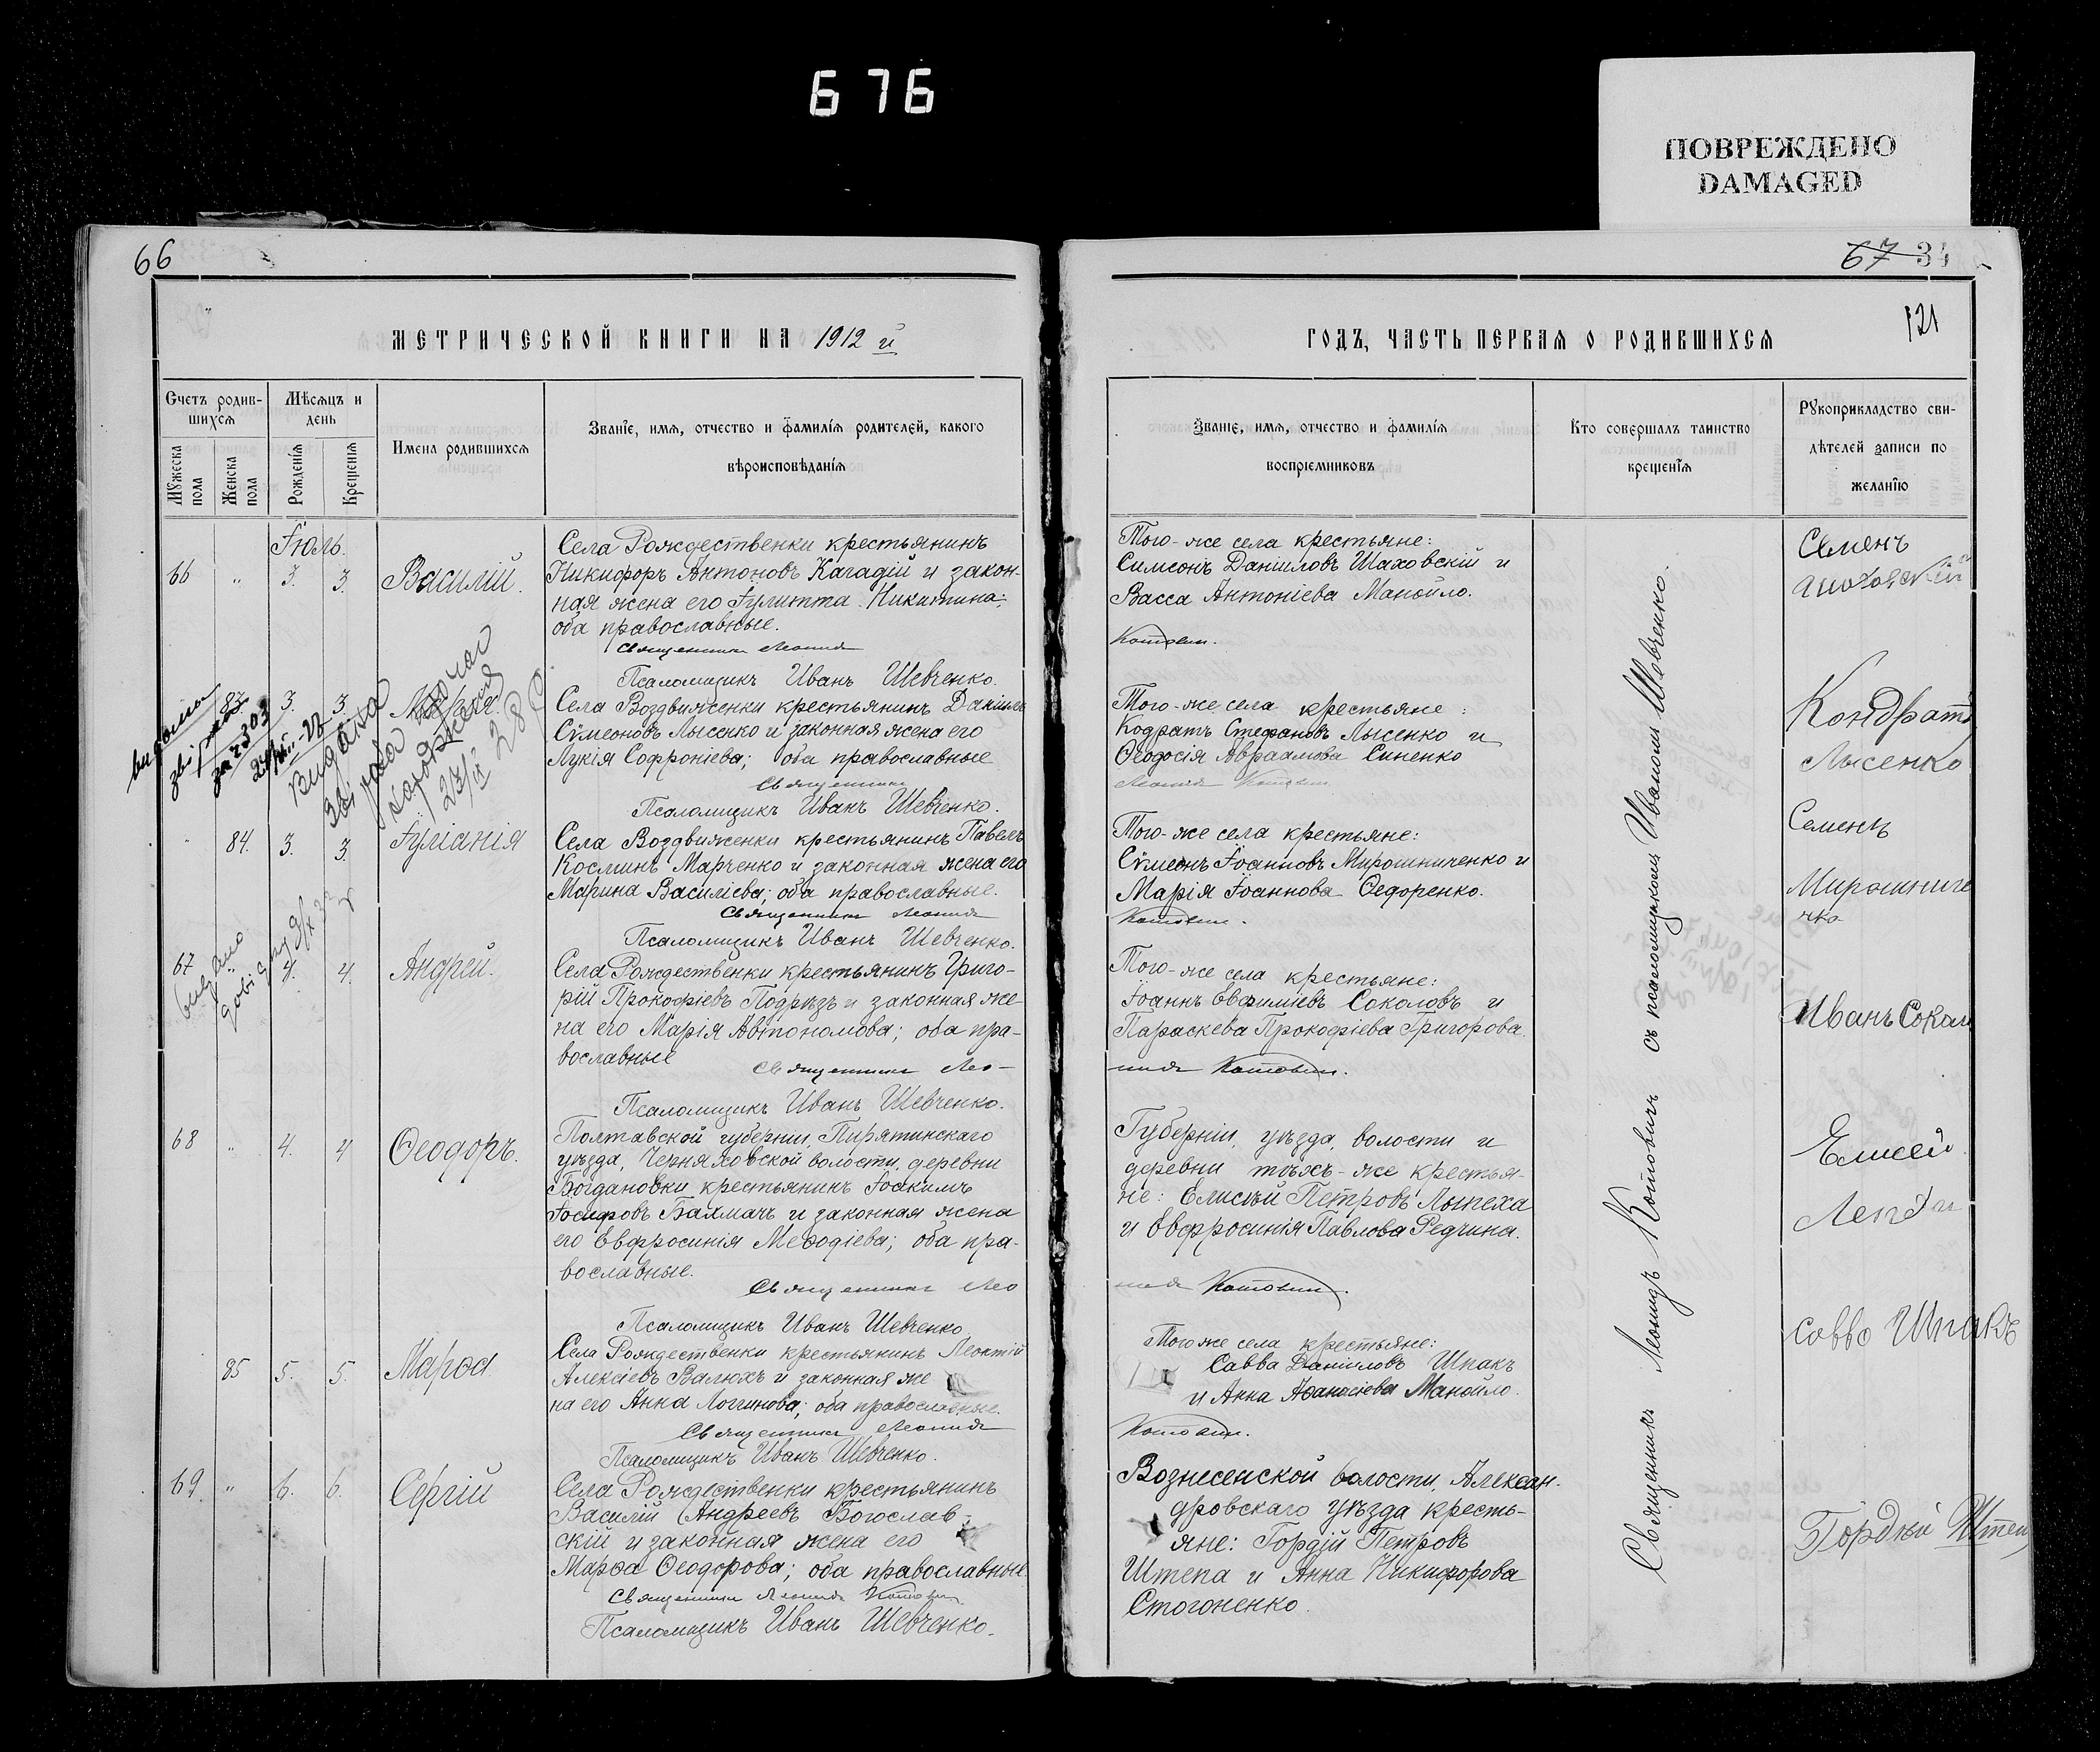 676
ПОВРЕЖДЕНО
DAMAGED
66
МЕТРИЧЕСКОЙ КНИГИ НА 1912 й
Счетъ родив-
шихся
Мѣсяцъ и
день
Мужеска
пола
Женска
пола
Рожденія
Крещенія
Имена родившихся
Званіе, имя, отчество и фамилія родителей, какого
вѣроисповѣданія
Іюль.
66 " 3. 3. Василій.
Села Рождественки крестьянинъ
Никифоръ Антоновъ Кагадій и закон-
ная жена его Іулитта Никитина;
оба православные.
Священникъ Леонидъ
Псаломщикъ Иванъ Шевченко.
83 3. 3.
Села Воздвиженки крестьянинъ Даніилъ
Сѵмеоновъ Лысенко и законная жена его
Лукія Софроніева; оба православные
Священникъ
Псаломщикъ Иванъ Шевченко.
видана
84. 3. 3. Іуліанія
Села Воздвиженки крестьянинъ Павелъ
Косминъ Марченко и законная жена его
Марина Василіева; оба православные.
Священникъ Леонидъ
Псаломщикъ Иванъ Шевченко.
67 " 4. 4. Андрей.
Села Рождественки крестьянинъ Григо-
рій Прокофіевъ Подрѣзъ и законная же-
на его Марія Автономова; оба пра-
вославные
Священникъ Лео-
Псаломщикъ Иванъ Шевченко.
68 " 4. 4 Ѳеодоръ.
Полтавской губерніи, Пирятинскаго
уѣзда, Черняховской волости, деревни
Богдановки крестьянинъ Іоакимъ
Іосифовъ Бахмачъ и законная жена
его Евфросинія Меѳодіева; оба пра-
вославные.
Священникъ Лео
Псаломщикъ Иванъ Шевченко
85 5. 5. Марѳа
Села Рождественки крестьянинъ Леонтій
Алексіевъ Валюхъ и законная же
на его Анна Логгинова; оба православные.
Священникъ Леонидъ
Псаломщикъ Иванъ Шевченко.
69. " 6. 6. Сергій
Села Рождественки крестьянинъ
Василій Андреевъ Богослав-
скій и законная жена его
Марѳа Ѳеодорова; оба православные.
Священникъ Леонидъ Котович
Псаломщикъ Иванъ Шевченко.
67 34
121
ГОДЪ, ЧАСТЬ ПЕРВАЯ О РОДИВШИХСЯ
Званіе, имя, отчество и фамилія
воспріемниковъ
Кто совершалъ таинство
крещенія
Рукоприкладство сви-
дѣтелей записи по
желанію
Того-же села крестьяне:
Симеонъ Даніиловъ Шаховскій и
Васса Антоніева Манойло.
Котович.
Семенъ
Того-же села крестьяне:
Кодратъ Стефановъ Лысенко и
Ѳеодосія Авраамова Синенко
Леонидъ Котович
Кондратъ
Лысенко
Того-же села крестьяне:
Сѵмеонъ Іоанновъ Мирошниченко и
Марія Іоаннова Ѳедоренко.
Котович.
Семенъ
Мирошниче
нко
Того-же села крестьяне:
Іоаннъ Евфиміевъ Соколовъ и
Параскева Прокофіева Григорова.
нидъ Котович.
Иванъ Сокал
Губерніи, уѣзда, волости и
деревни тѣхъ-же крестья-
не: Елисѣй Петровъ Лыпеха
и Евфросинія Павлова Редчина.
нидъ Котович.
Елисей
Того же села крестьяне:
Савва Даніиловъ Шпакъ
и Анна Аѳанасіева Манойло.
Котович.
Савва Шпакъ
Вознесенской волости, Алексан-
дровскаго уѣзда кресть-
яне: Гордій Петровъ
Штепа и Анна Никифорова
Стогоненко.
Гордѣй Штеп
Священникъ Леонидъ Котовичъ съ псаломщикомъ Иваномъ Шевченко.